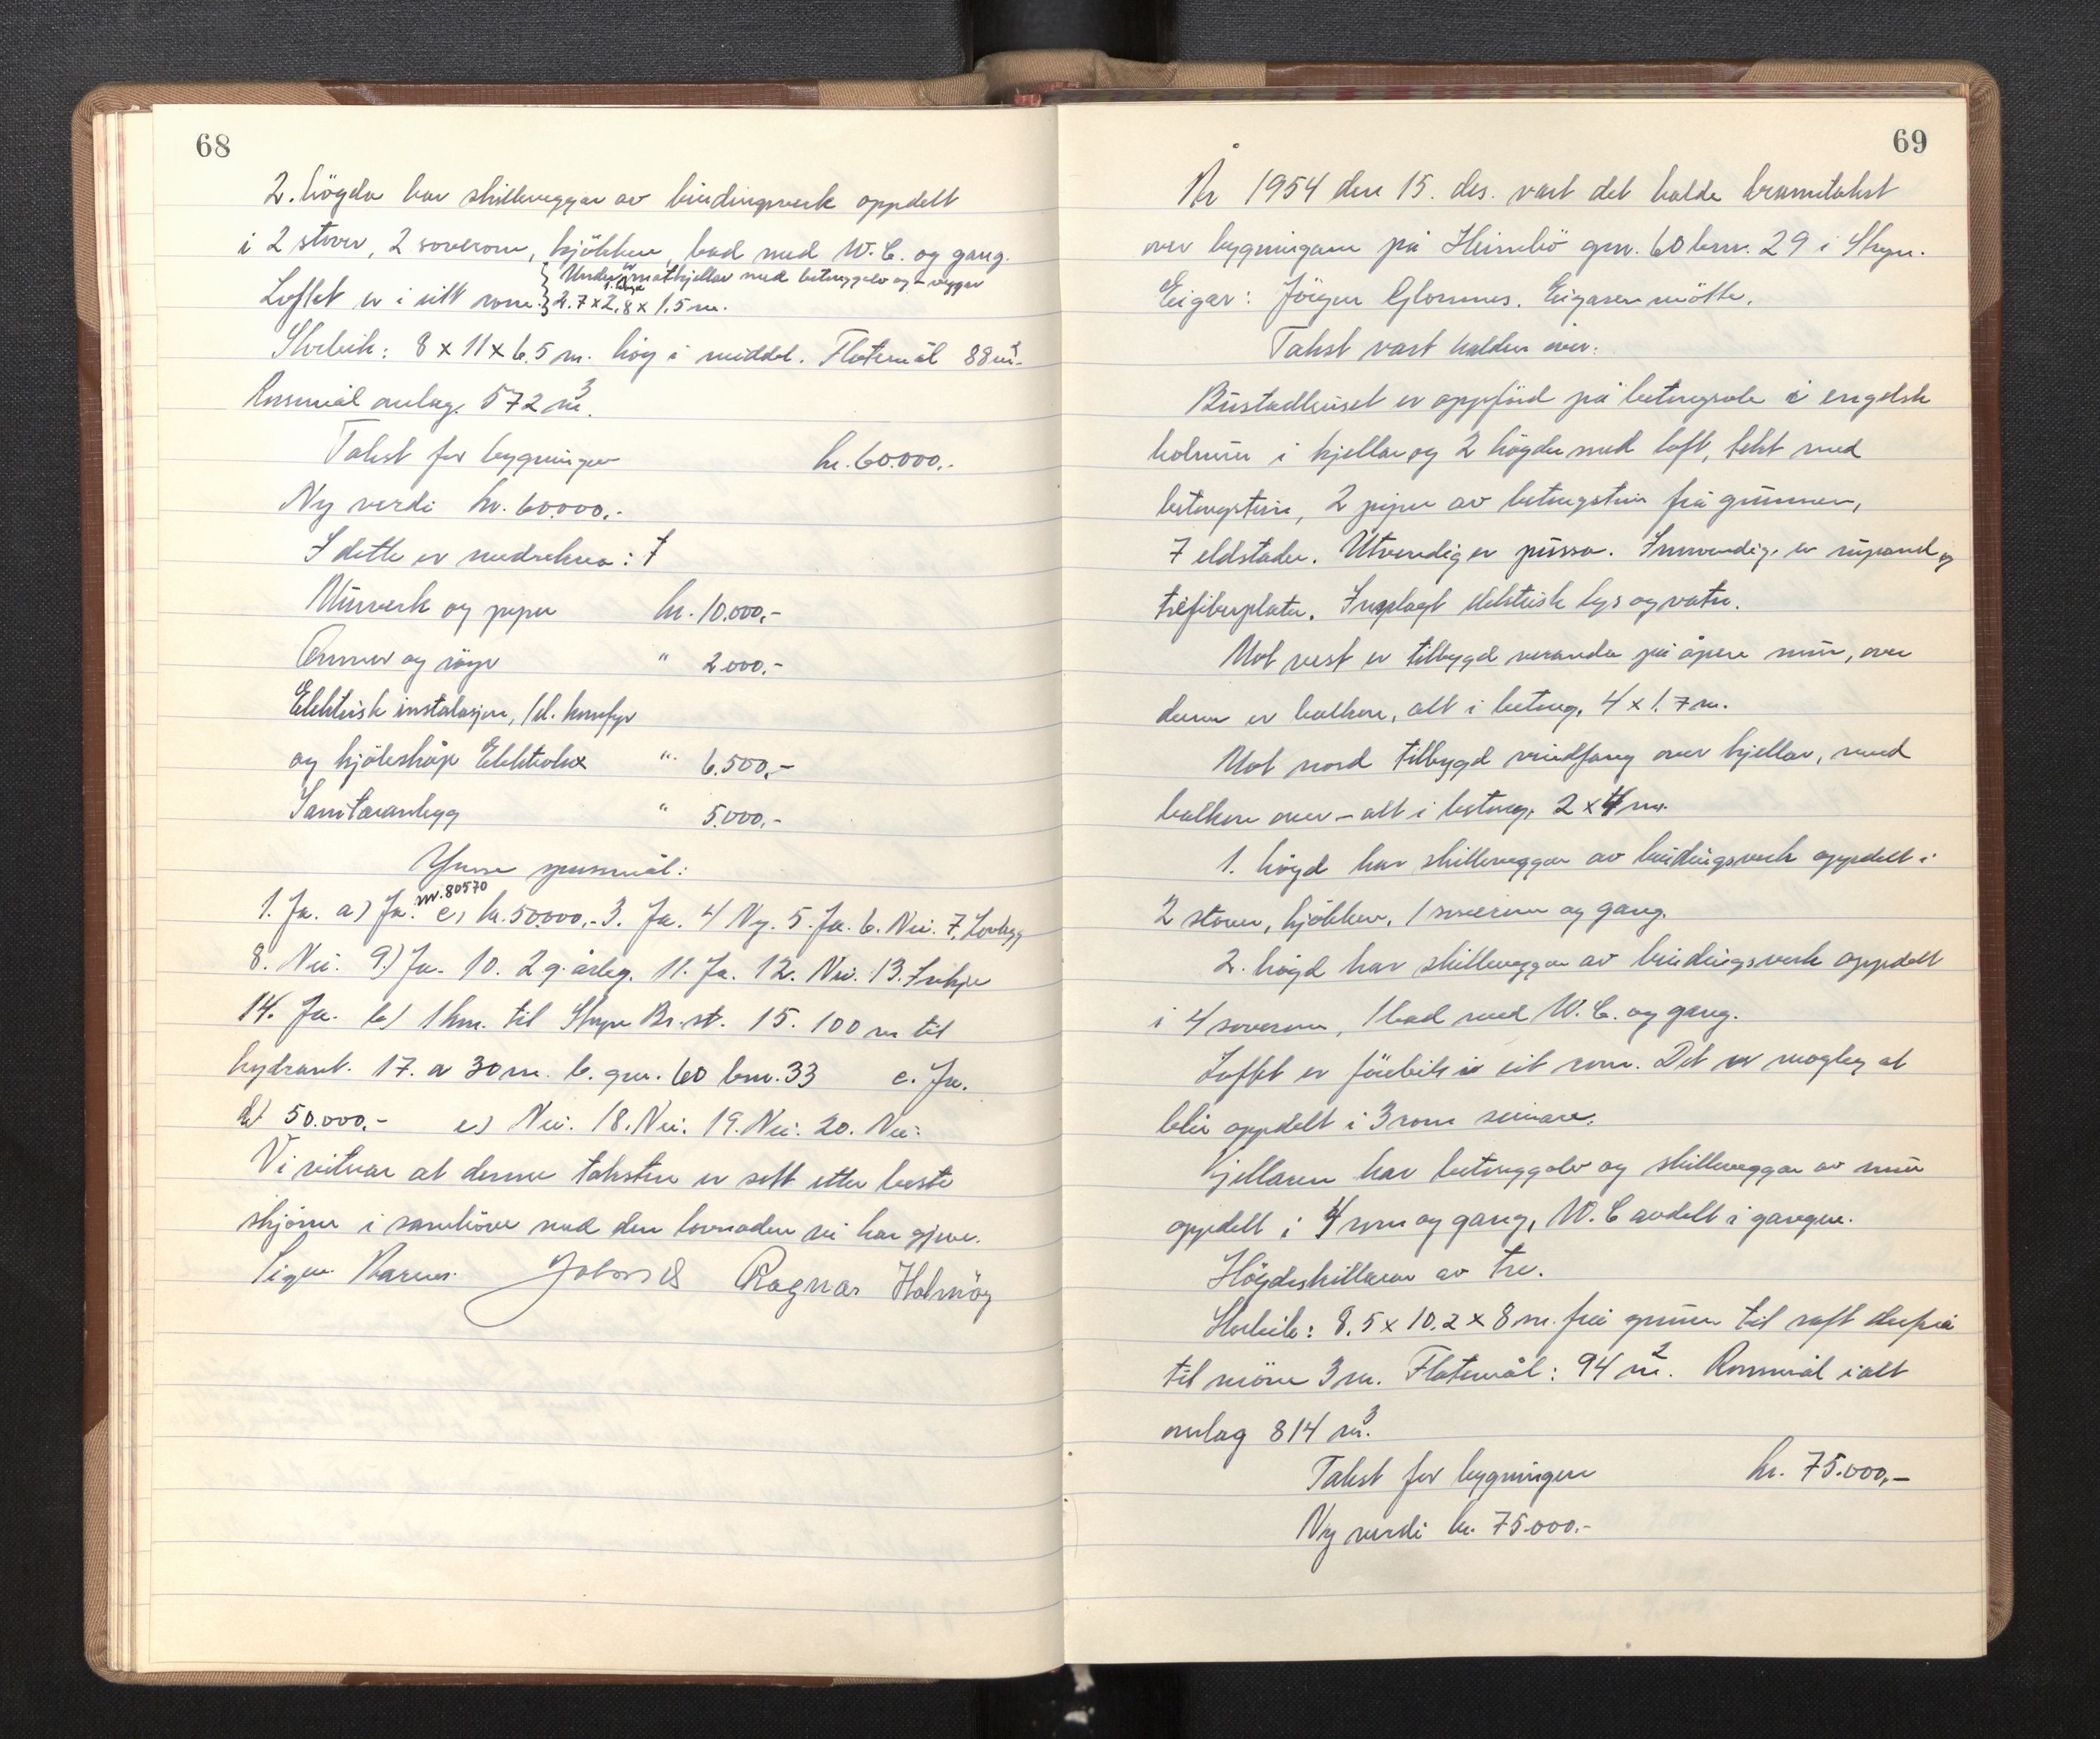 68
2. högda har skilleveggar av bindingsverk oppdelt
i 2 stover, 2 soverom, kjökken, bad med W.C. og gang.
Under 1. högda er matkjellar med betonggolv og - veggar
Loftet er i eitt rom. 2.7 x 2,8 x 1,5 m.
Storleik: 8 x 11 x 6.5 m. hög i middel. Flatemål 88 m².
Rommål omlag. 572 m³.
Takst for bygningen kr. 60.000,-
Ny verdi kr. 60.000,-
I dette er medrekna:
Murverk og piper kr. 10.000,-
Omnar og röyr " 2.000,-
Elektrisk instalasjon, 1 el. komfyr
og kjöleskåp Elektrolux " 6.500,-
Sanitæranlegg " 5.000,-
Ymse spursmål:
nr. 80570
1. Ja. a) Ja. c) kr. 50.000,- 3. Ja. 4 Ny. 5. Ja. 6. Nei. 7.
8. Nei. 9) Ja. 10. 2 g. årleg. 11. Ja. 12. Nei. 13. Inkje
14. Ja. b) 1 km. til Stryn Br.st. 15. 100 m til
hydrant. 17. a 30 m. b. gnr. 60 bnr. 33 c. Ja.
d) 50.000,- e) Nei. 18. Nei. 19. Nei. 20. Nei.
Vi vitnar at denne taksten er sett etter beste
skjönn i samhöve med den lovnaden vi har gjeve.
Ragnar Holmöy
69
År 1954 den 15. des. vart det halde branntakst
over bygningane på Heimbö gnr. 60 bnr. 29 i Stryn.
Eigar: Jörgen Glomnes. Eigaren mötte.
Takst vart halden over:
Bustadhuset er oppförd på betongsole i engelsk
holmur i kjellar og 2 högder med loft, tekt med
betongstein, 2 piper av betongstein frå grunnen,
7 eldstader. Utvendig er pussa. Innvendig er rupanel og
trefiberplater. Innlagt elektrisk lys og vatn.
Mot vest er tilbygd veranda på åpen mur, over
denne er balkon, alt i betong, 4 x 1.7 m.
Mot nord tilbygd vindfang over kjellar, med
balkon over - alt i betong, 2 x 4 m.
1. högd har skilleveggar av bindingsverk oppdelt i
2 stover, kjökken, 1 soverom og gang.
2. högd har skilleveggar av bindingsverk oppdelt
i 4 soverom, 1 bad med W.C. og gang.
Loftet er förebils i eit rom. Det er mogleg at
blir oppdelt i 3 rom seinare.
Kjellaren har betonggolv og skilleveggar av mur
oppdelt i 4 rom og gang, W.C avdelt i gangen.
Högdeskillaren av tre.
Storleik: 8,5 x 10.2 x 8 m. frå grunn til raft derfrå
til möne 3 m. Flatemål: 94 m². Rommål i alt
omlag 814 m³.
Takst for bygningen kr. 75.000,-
Ny verdi kr. 75.000.-